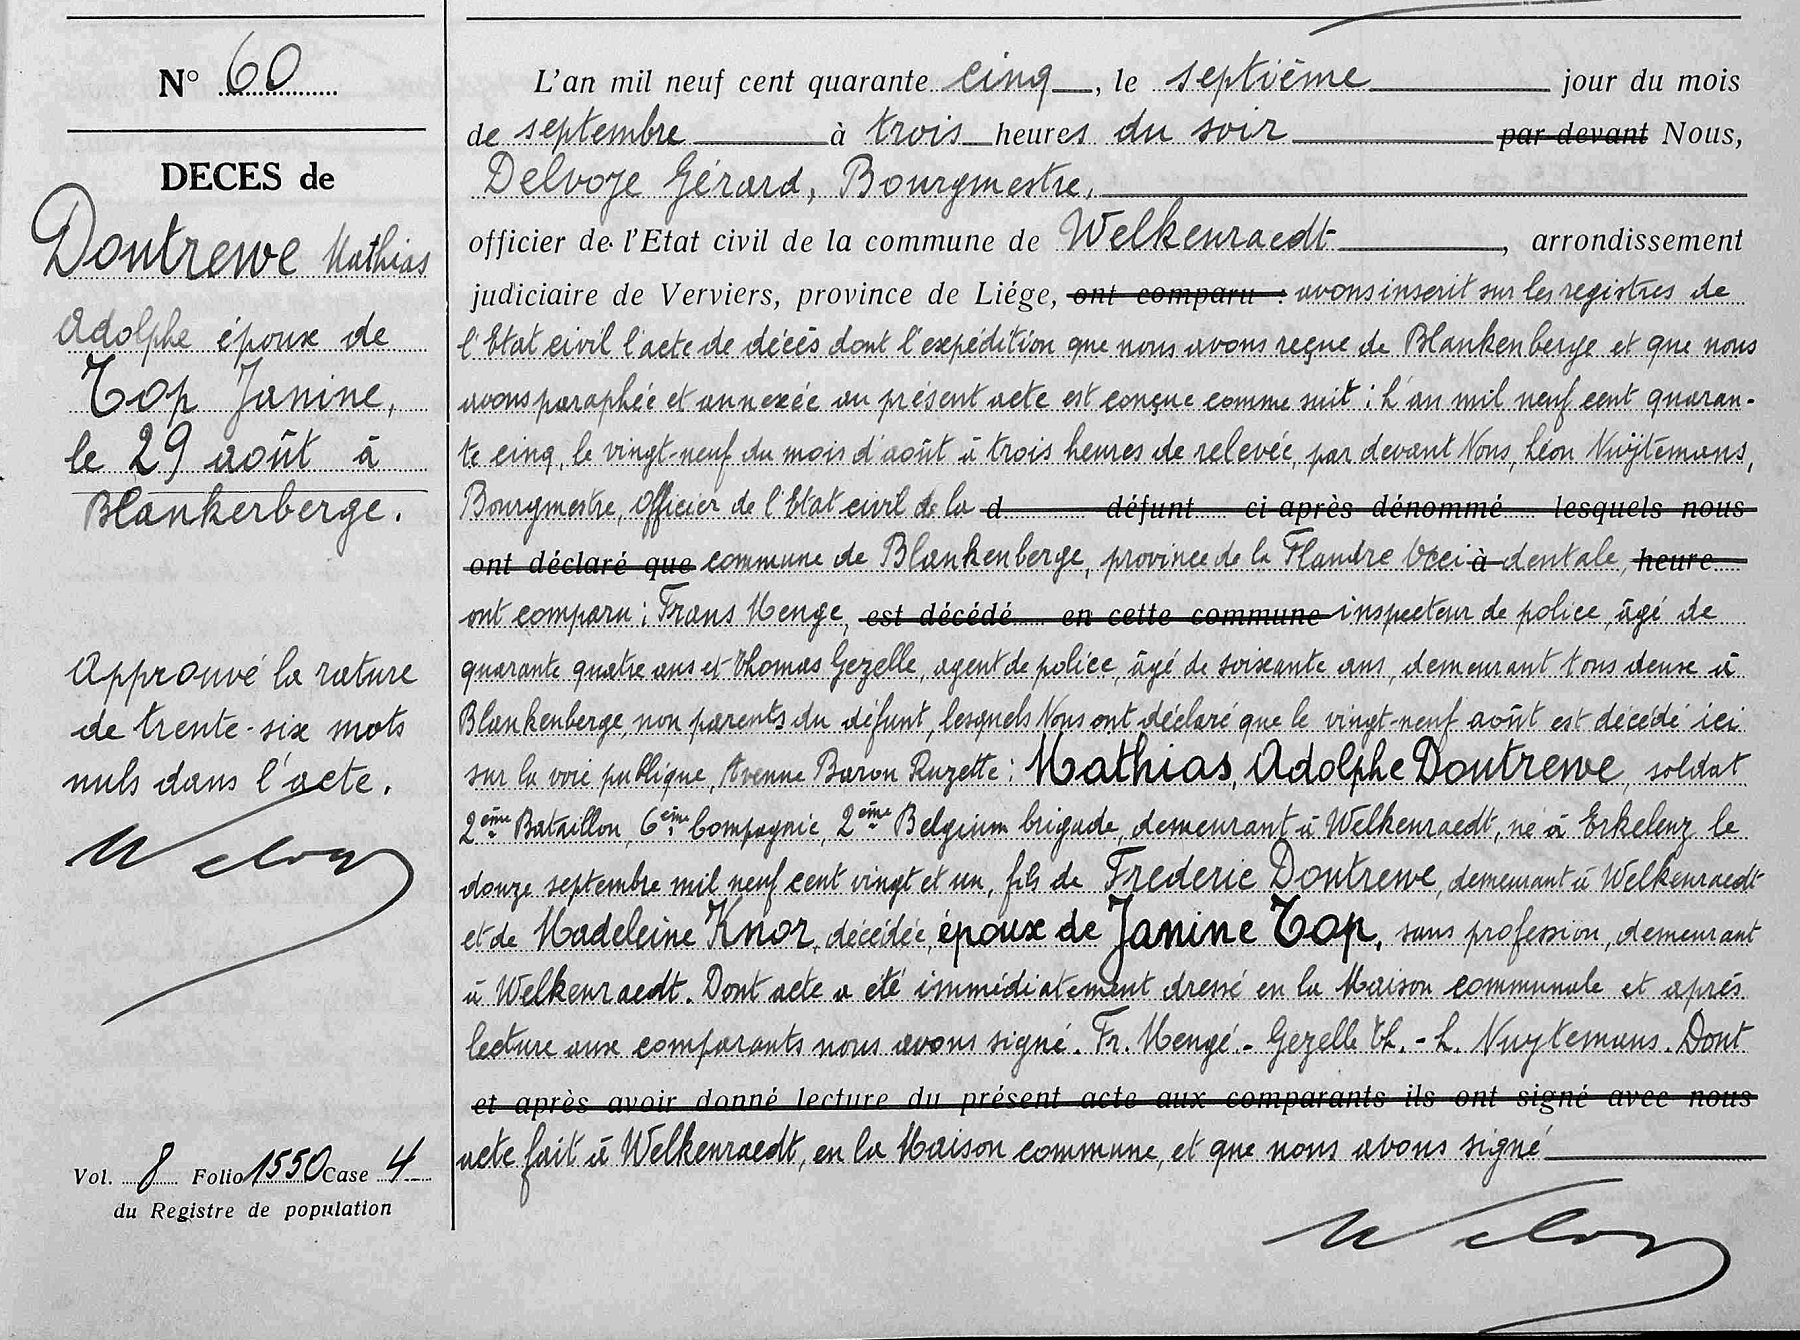 N° 60
DECES de
Doutrewe Mathias
Adolphe époux de
Top Janine,
le 29 août à
Blankerberge.
Approuvé la rature
de trente-six mots
nuls dans l'acte.
Vol. 8 Folio 1550 Case 4
du Registre de population
L'an mil neuf cent quarante cinq, le septième jour du mois
de septembre à trois heures du soir par devant Nous,
Delvoye Gérard, Bourgmestre,
officier de l'Etat civil de la commune de Welkenraedt, arrondissement
judiciaire de Verviers, province de Liége, ont comparu : avons inscrit sur les registres de
l'Etat civil l'acte de décès dont l'expédition que nous avons reçue de Blankenberge et que nous
avons paraphée et annexée au présent acte est conçue comme suit : L'an mil neuf cent quaran-
te cinq, le vingt-neuf du mois d'août à trois heures de relevée, par devant Nous, Léon Nuytemans,
Bourgmestre, Officier de l'Etat civil de la d défunt ci après dénommé lesquels nous
ont déclaré que commune de Blankenberge, province de la Flandre Occi à dentale, heure
ont comparu : Frans Menge, est décédé en cette commune inspecteur de police, âgé de
quarante quatre ans et Thomas Gezelle, agent de police, âgé de soixante ans, demeurant tous deux à
Blankenberge, non parents du défunt, lesquels Nous ont déclaré que le vingt-neuf août est décédé ici
sur la voie publique, Avenue Baron Ruzette : Mathias, Adolphe Doutrewe, soldat
2ème Bataillon, 6ème Compagnie, 2ème Belgium brigade, demeurant à Welkenraedt, né à Erkelenz le
douze septembre mil neuf cent vingt et un, fils de Frederic Doutrewe, demeurant à Welkenraedt
et de Madeleine Knor, décédée, époux de Janine Top, sans profession, demeurant
à Welkenraedt. Dont acte a été immédiatement dressé en la Maison communale et après
lecture aux comparants nous avons signé. Fr. Mengé. - Gezelle Th. - L. Nuytemans. Dont
et après avoir donné lecture du présent acte aux comparants ils ont signé avec nous
acte fait à Welkenraedt, en la Maison commune, et que nous avons signé